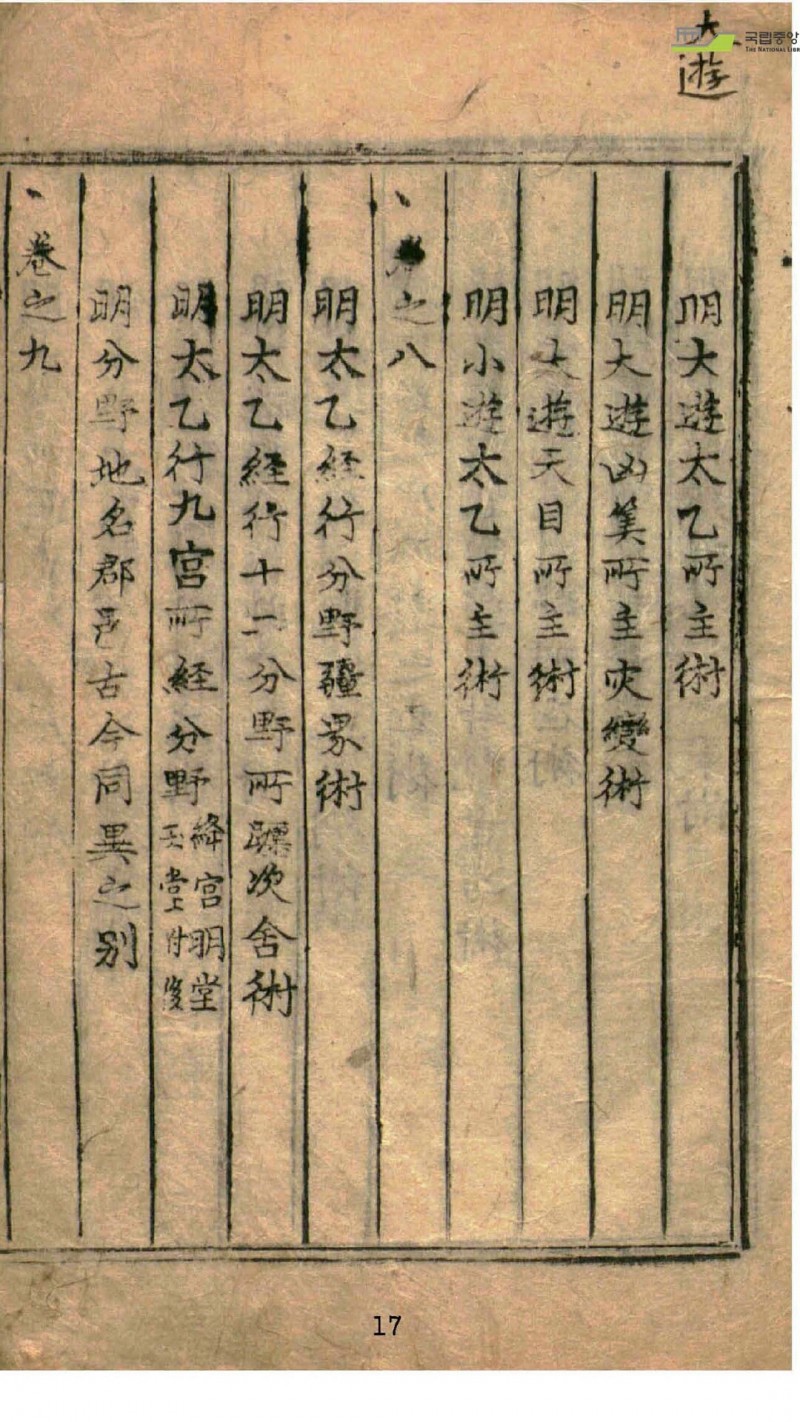 大遊
국립중앙
THE NATIONAL LIBR
明大遊太乙所主術
明大遊凶筭所主灾變術
明大遊天目所主術
明小遊太乙所主術
卷之八
明太乙経行分野疆界術
明太乙経行十二分野所躔次舍術
明太乙行九宮所経分野
絳宮明堂
玉堂附後
明分野地名郡邑古今同異之别
卷之九
17